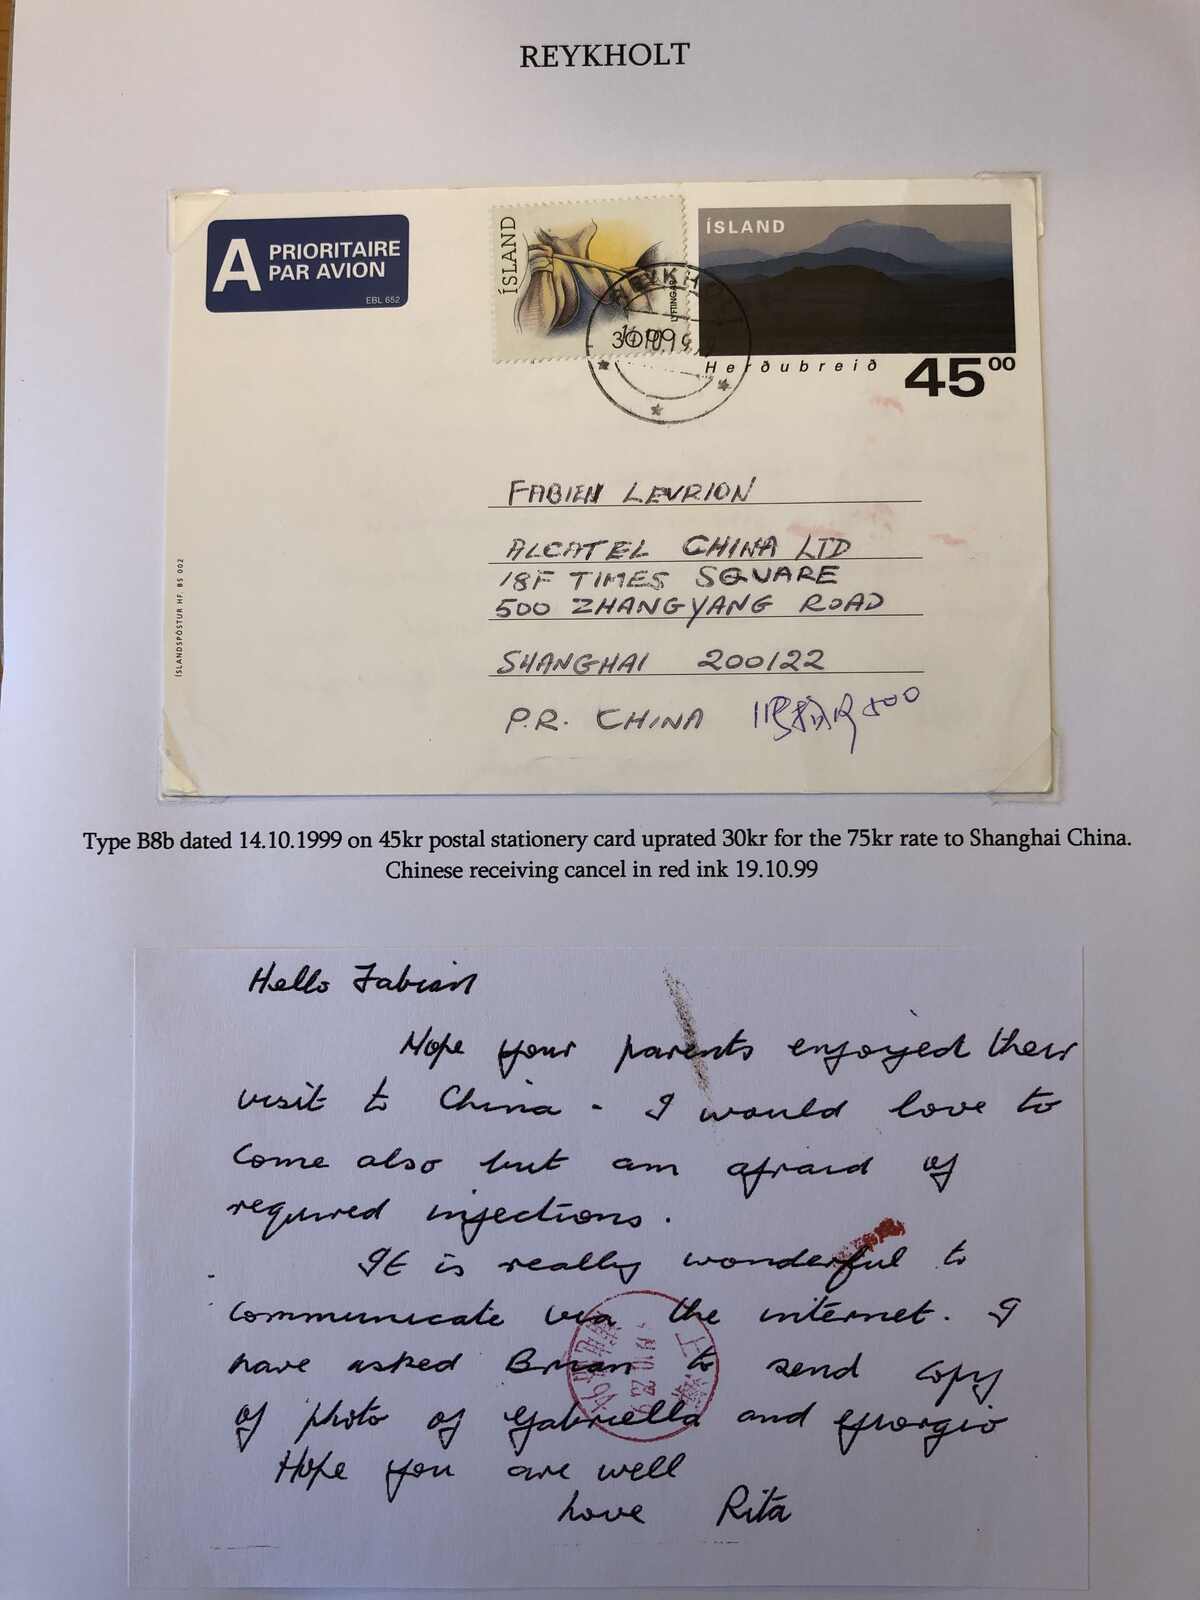 REYKHOLT
A PRIORITAIRE
PAR AVION
EBL 652
ÍSLAND
LYFTING
ÍSLAND
Herðubreið
45 00
REYKHOLT
FABIEN LEVRION
ALCATEL CHINA LTD
18F TIMES SQUARE
500 ZHANGYANG ROAD
SHANGHAI 200122
P.R. CHINA
ÍSLANDSPÓSTUR HF. BS 002
Type B8b dated 14.10.1999 on 45kr postal stationery card uprated 30kr for the 75kr rate to Shanghai China.
Chinese receiving cancel in red ink 19.10.99
Hello Fabian
Hope your parents enjoyed their
visit to China - I would love to
come also but am afraid of
required injections.
It is really wonderful to
communicate via the internet. I
have asked Brian to send copy
of photo of Gabriella and Giorgio
Hope you are well
Love Rita
上海